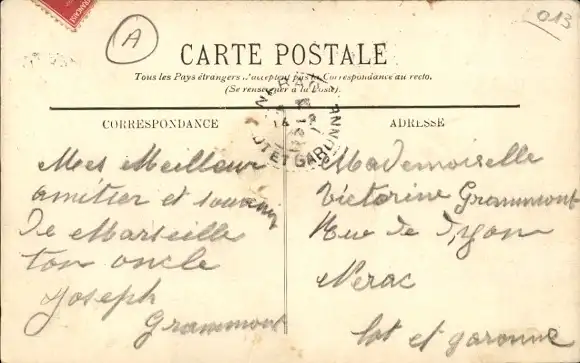 A
013
CARTE POSTALE
Tous les Pays étrangers n'acceptent pas la Correspondance au recto.
(Se renseigner à la Poste).
NÉRAC
LOT ET GARONNE
CORRESPONDANCE
Mes Meilleur
amitier et souvenir
De Marseille
ton oncle
Joseph
Grammont
ADRESSE
Mademoiselle
Victorine Grammont
Rue de
Nerac
lot et garonne